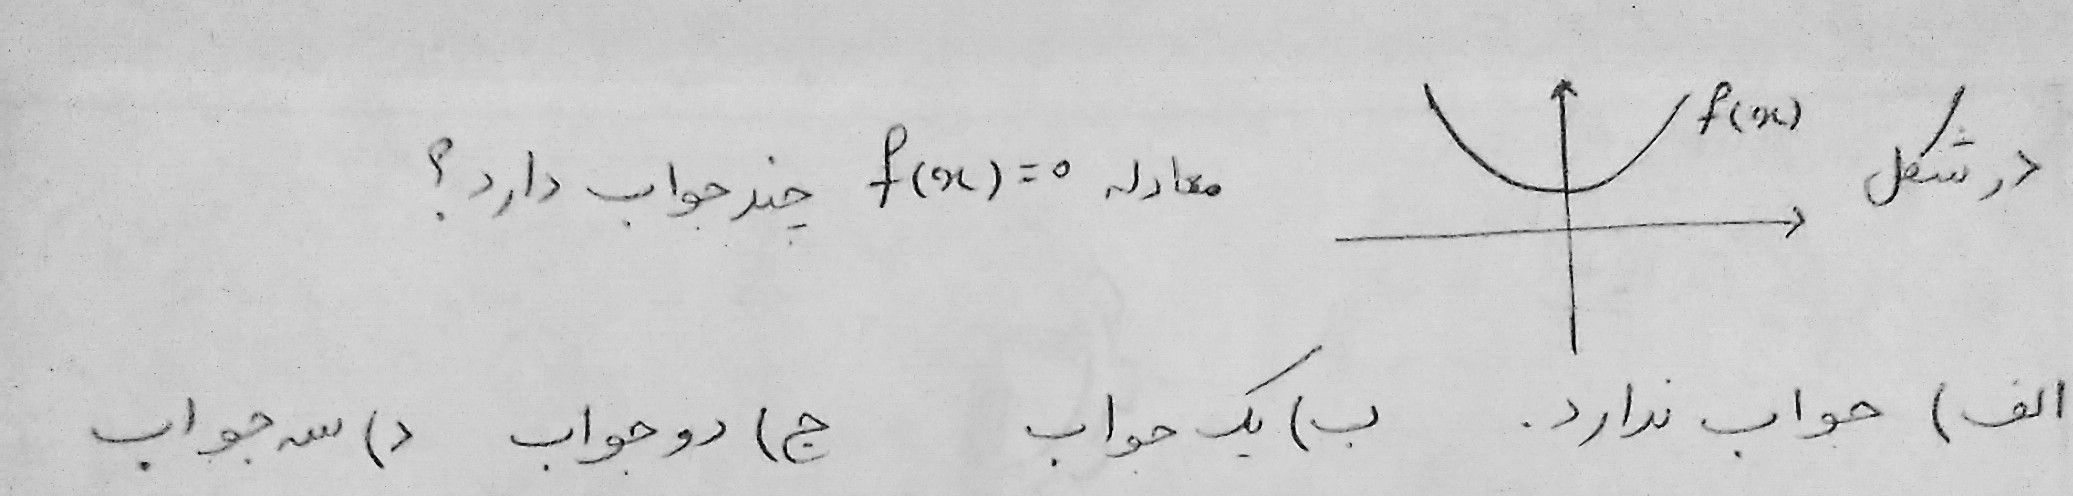 در شکل f(x) معادله f(x)=0 چند جواب دارد؟
الف) جواب ندارد. ب) یک جواب ج) دو جواب د) سه جواب